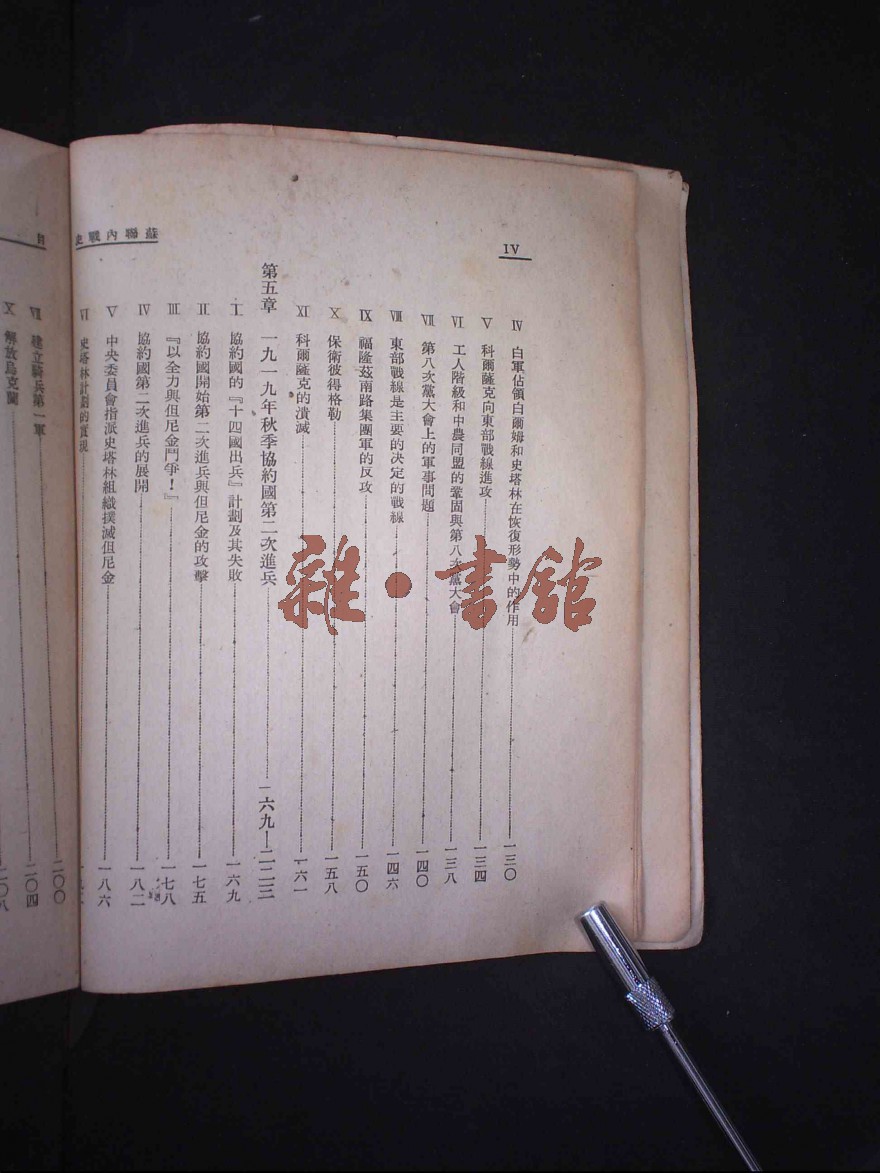 IV
蘇聯內戰史
IV 白軍佔領白爾姆和史塔林在恢復形勢中的作用 一三〇
V 科爾薩克向東部戰線進攻 一三四
VI 工人階級和中農同盟的鞏固與第八次黨大會 一三八
VII 第八次黨大會上的軍事問題 一四〇
VIII 東部戰線是主要的決定的戰線 一四六
IX 福隆茲南路集團軍的反攻 一五〇
X 保衛彼得格勒 一五八
XI 科爾薩克的潰滅 一六一
第五章 一九一九年秋季協約國第二次進兵 一六九—二二三
I 協約國的『十四國出兵』計劃及其失敗 一六九
II 協約國開始第二次進兵與但尼金的攻擊 一七五
III 『以全力與但尼金鬥爭！』 一七八
IV 協約國第二次進兵的展開 一八二
V 中央委員會指派史塔林組織撲滅但尼金 一八六
VI 史塔林計劃的實現
二〇〇
VII 建立騎兵第一軍 二〇四
X 解放烏克蘭 二〇八
雜·書館